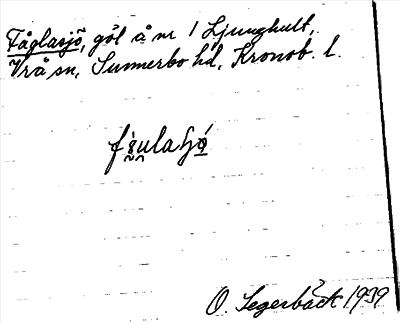 Fåglasjö, göl å nr 1 Ljunghult,
Vrå sn, Sunnerbo hd, Kronob. l.
O. Segerbäck 1939